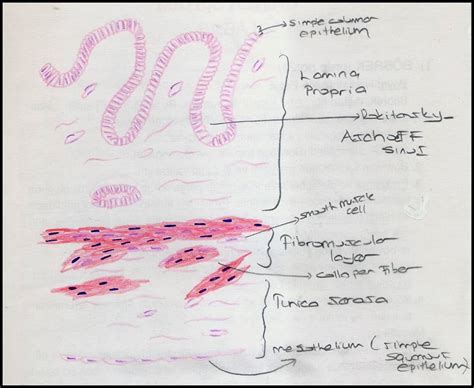 simple columnar
epithelium
Lamina
Propria
Rokitansky
Aschoff
sinus
smooth muscle
cell
Fibromuscular
layer
collagen Fiber
Tunica serosa
mesothelium (simple
squamous
epithelium)